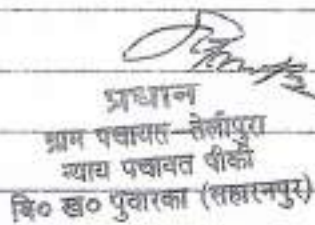 प्रधान
ग्राम पंचायत-तेलीपुरा
न्याय पंचायत पीकी
वि० ख० पुंवारका (सहारनपुर)